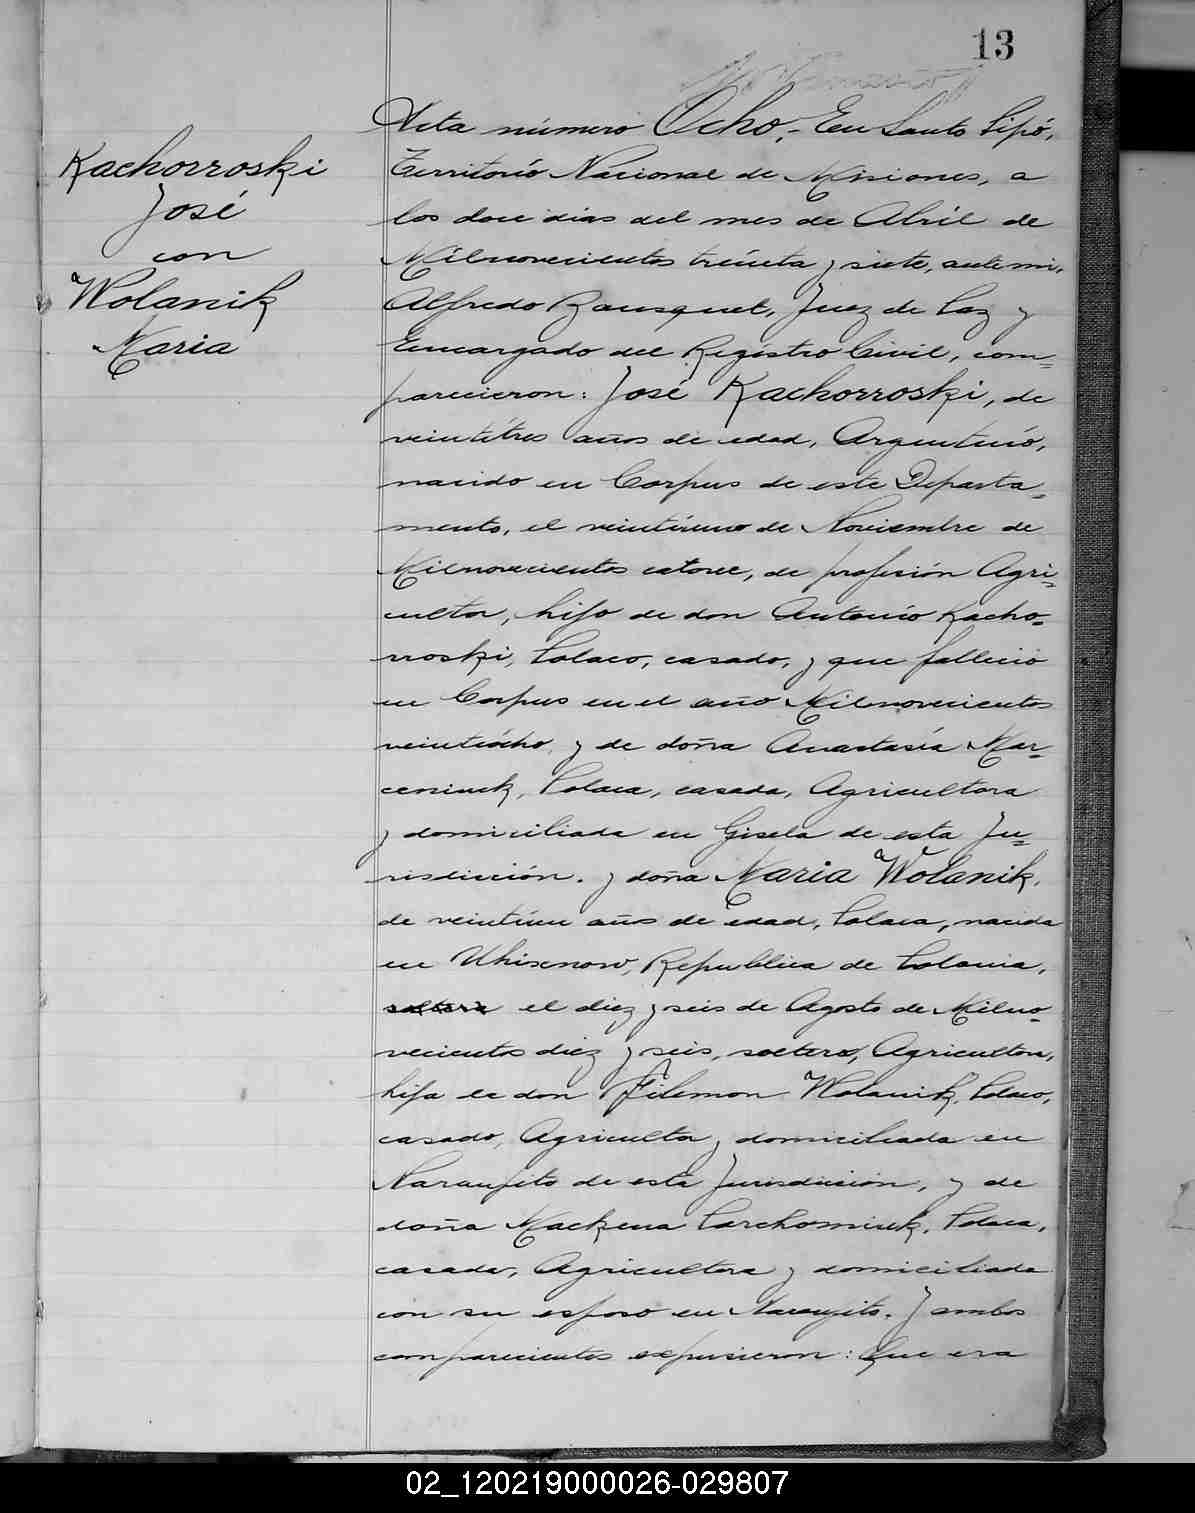 13
Acta número Ocho.- En Santo Pipó,
Territorio Nacional de Misiones, a
los doce dias del mes de Abril de
Milnovecientos treinta y siete, ante mi,
Alfredo Bousquet, Juez de Paz y
Encargado del Registro Civil, com=
parecieron: José Kachorroski, de
veintitres años de edad, Argentino,
nacido en Corpus de este Departa=
mento, el veintiuno de Noviembre de
Milnovecientos catorce, de profesión Agri=
cultor, hijo de don Antonio Kacho=
rroski, Polaco, casado, y que falleció
en Corpus en el año Milnovecientos
veintiocho, y de doña Anastasia Mar=
ceniuk, Polaca, casada, Agricultora
y domiciliada en Gisela de esta Ju=
risdicción. y doña Maria Wolanik,
de veintiun años de edad, Polaca, nacida
en Republica de Polonia,
soltera el diez y seis de Agosto de Milno=
vecientos diez y seis, soltera, Agricultora,
hija de don Filemon Wolanik, Polaco,
casado, Agricultor y domiciliada en
Naranjito de esta Jurisdicción, y de
doña Mackena Parchomiuk, Polaca,
casada, Agricultora y domiciliada
con su esposo en Naranjito. Y ambos
comparecientes expusieron: Que era
Kachorroski
José
con
Wolanik
Maria
02_120219000026-029807